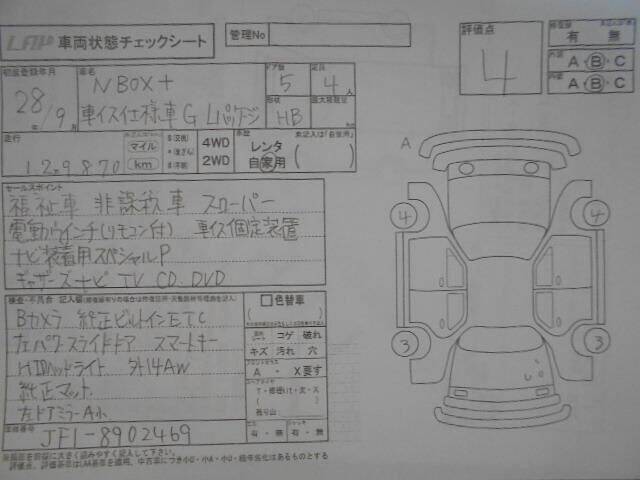 LAA 車両状態チェックシート
管理No
評価点
4
有 無
A・B・C
A・B・C
初度登録年月
28/9
年 月
車名
N BOX+
車イス仕様車 G Lパッケージ
ドア数
5
定員
4人
形状
HB
最大積載量
走行
129870
マイル
km
4WD
2WD
レンタ
自家用
未記入は「自家用」
セールスポイント
福祉車 非課税車 スローパー
電動ウインチ(リモコン付) 車イス固定装置
ナビ装着用スペシャルP
ギャザーズナビ TV CD DVD
Bカメラ 純正ビルトインETC
左パワースライドドア スマートキー
HIDヘッドライト 外14AW
純正マット
左ドアミラーA小
色替車
コゲ 破れ
キズ 汚れ 穴
A ・ X要す
残り山
有・無 有・無
車台番号
JF1-8902469
A
4
4
3
3